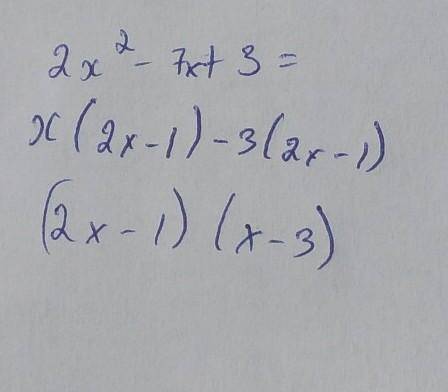 2x² - 7x + 3 =
x(2x-1) - 3(2x-1)
(2x-1) (x-3)